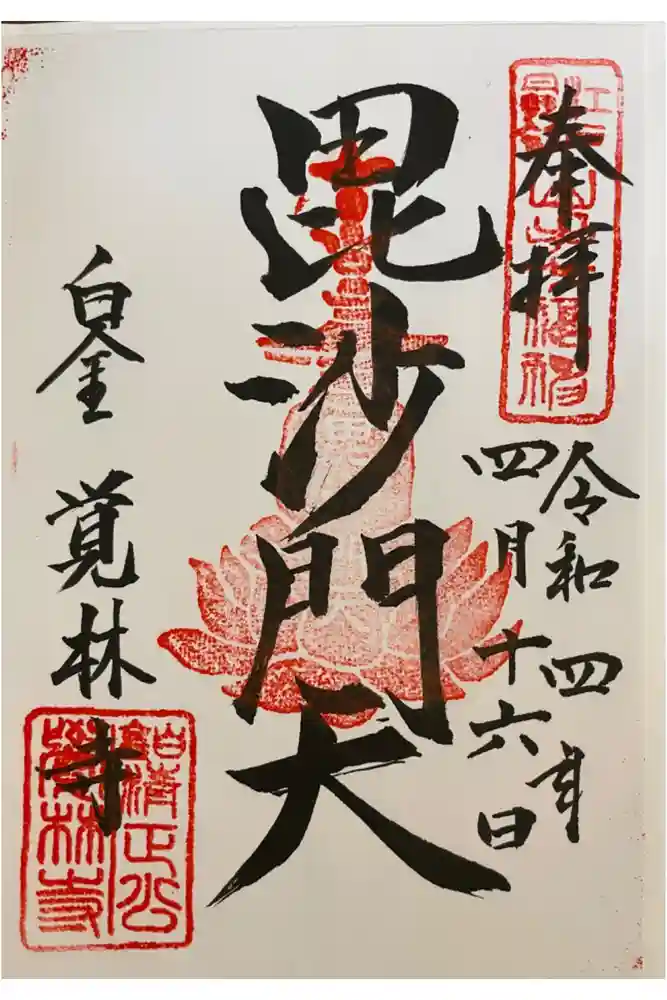 奉拝
令和四年
四月十六日
毘沙門天
白金 覚林寺
清正公
覚林寺